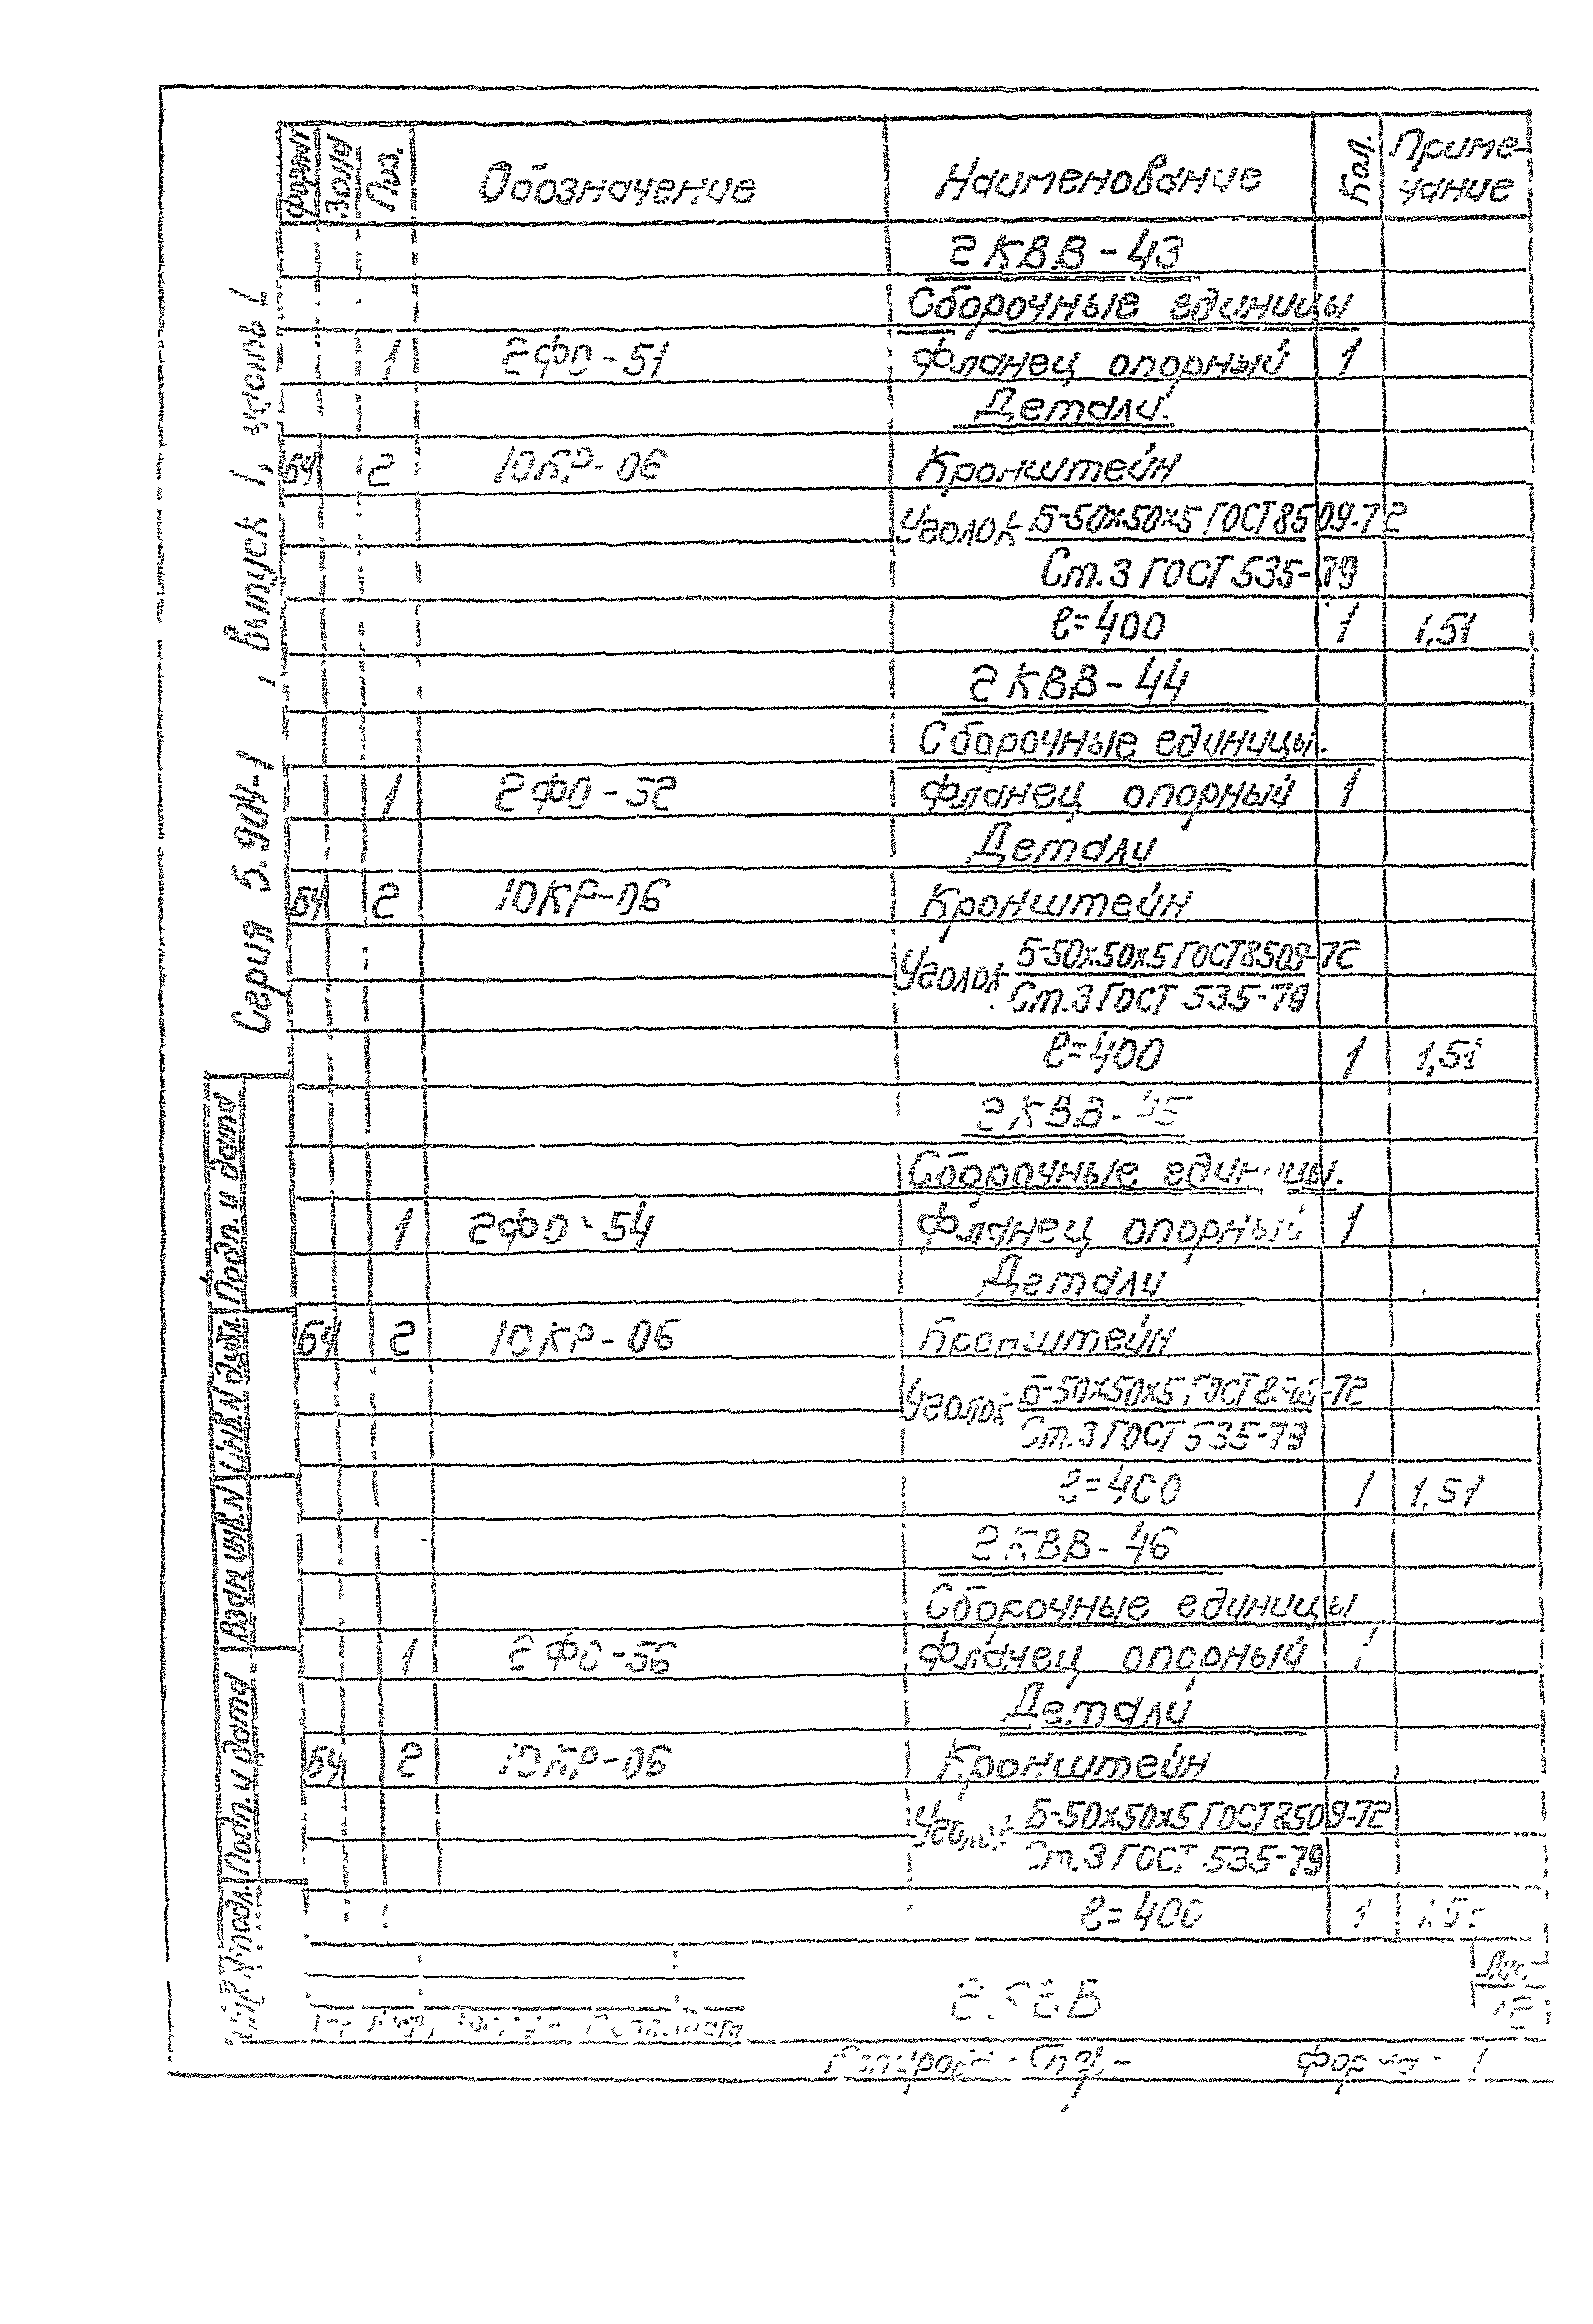 Формат Зона Поз. Обозначение Наименование Кол. Приме-
чание
2КВВ-43
Сборочные единицы
1 2ФО-51 Фланец опорный 1
Детали.
БЧ 2 10КР-06 Кронштейн
Уголок Б-50х50х5 ГОСТ 8509-72
Ст.3 ГОСТ 535-79
ℓ=400 1 1,51
2КВВ-44
Сборочные единицы.
1 2ФО-52 Фланец опорный 1
Детали
БЧ 2 10КР-06 Кронштейн
Уголок Б-50х50х5 ГОСТ 8509-72
Ст.3 ГОСТ 535-79
ℓ=400 1 1,51
2КВВ-45
Сборочные единицы.
1 2ФО-54 Фланец опорный 1
Детали
БЧ 2 10КР-06 Кронштейн
Уголок Б-50х50х5 ГОСТ 8509-72
Ст.3 ГОСТ 535-79
ℓ=400 1 1,51
2КВВ-46
Сборочные единицы
1 2ФО-56 Фланец опорный 1
Детали
БЧ 2 10КР-06 Кронштейн
Уголок Б-50х50х5 ГОСТ 8509-72
Ст.3 ГОСТ 535-79
ℓ=400 1
Серия 5. , выпуск 1,
Подп. и дата
Инв.N дубл.
Взам. инв.N
Подп. и дата
подл.
Формат